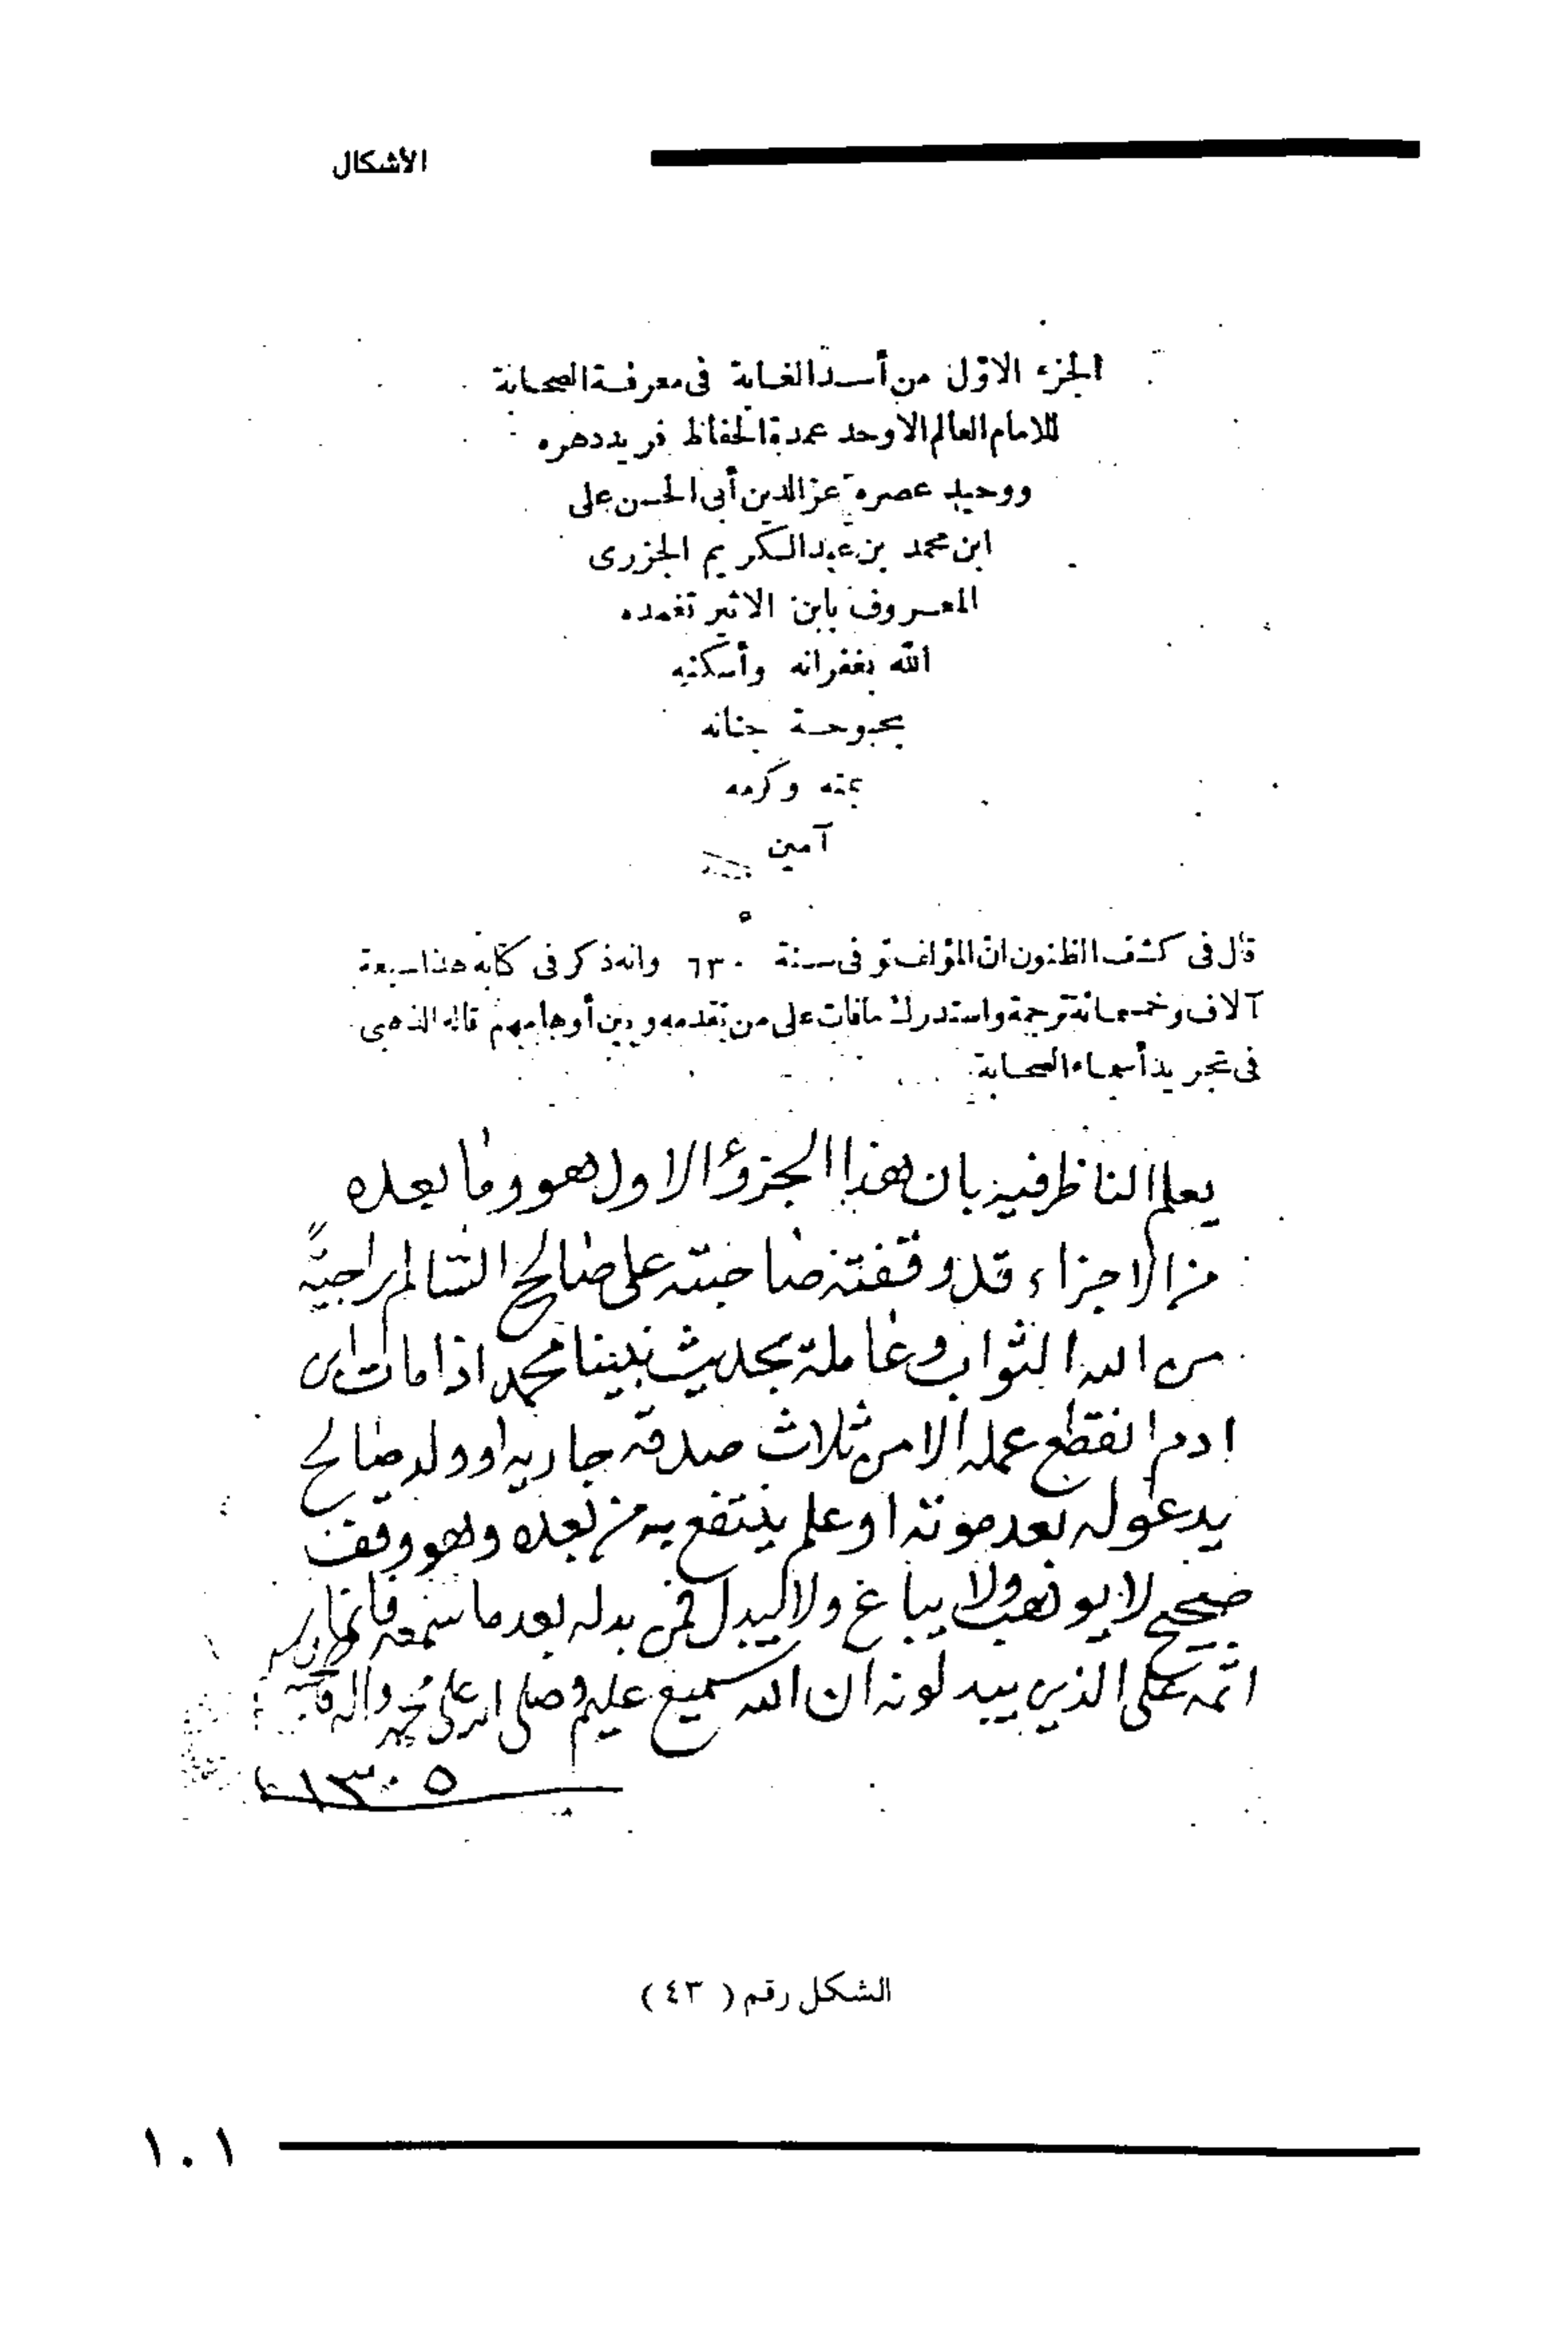 الأشكال
الجزء الاوّل من أسد الغابة فى معرفة الصحابة
للامام العالم الاوحد عمدة الحفاظ فريد دهره
ووحيد عصره عز الدين أبى الحسن على
ابن محمد بن عبد الكريم الجزرى
المعروف بابن الاثير تغمده
الله بغفرانه وأسكنه
بحبوحة جنانه
بمنه وكرمه
آمين
قال فى كشف الظنون ان المؤلف توفى سنة ٦٣٠ وانه ذكر فى كتابه هذا سبعة
آلاف وخمسمائة ترجمة واستدرك ما فات على من تقدمه وبين أوهامهم قاله الذهبى
فى تجريد أسماء الصحابة
يعلم الناظر فيه بان هذا الجزؤ الاول هو وما بعده
من الاجزاء قد وقفته صاحبته على صالح السالم راجيةً
من الله الثواب وعاملة بحديث نبينا محمد اذا مات ابن
ادم انقطع عمله الا من ثلاث صدقه جاريه او ولد صالح
يدعوله بعد موته او علم ينتفع به من بعده وهو وقف
صحيح لا يوهب ولا يباع ولا يبدل فمن بدله بعد ما سمعه فانما
اثمه على الذين يبدلونه ان الله سميع عليم وصلى الله على محمد واله وصحبه
١٣٠٥
الشكل رقم ( ٤٣ )
١٠١